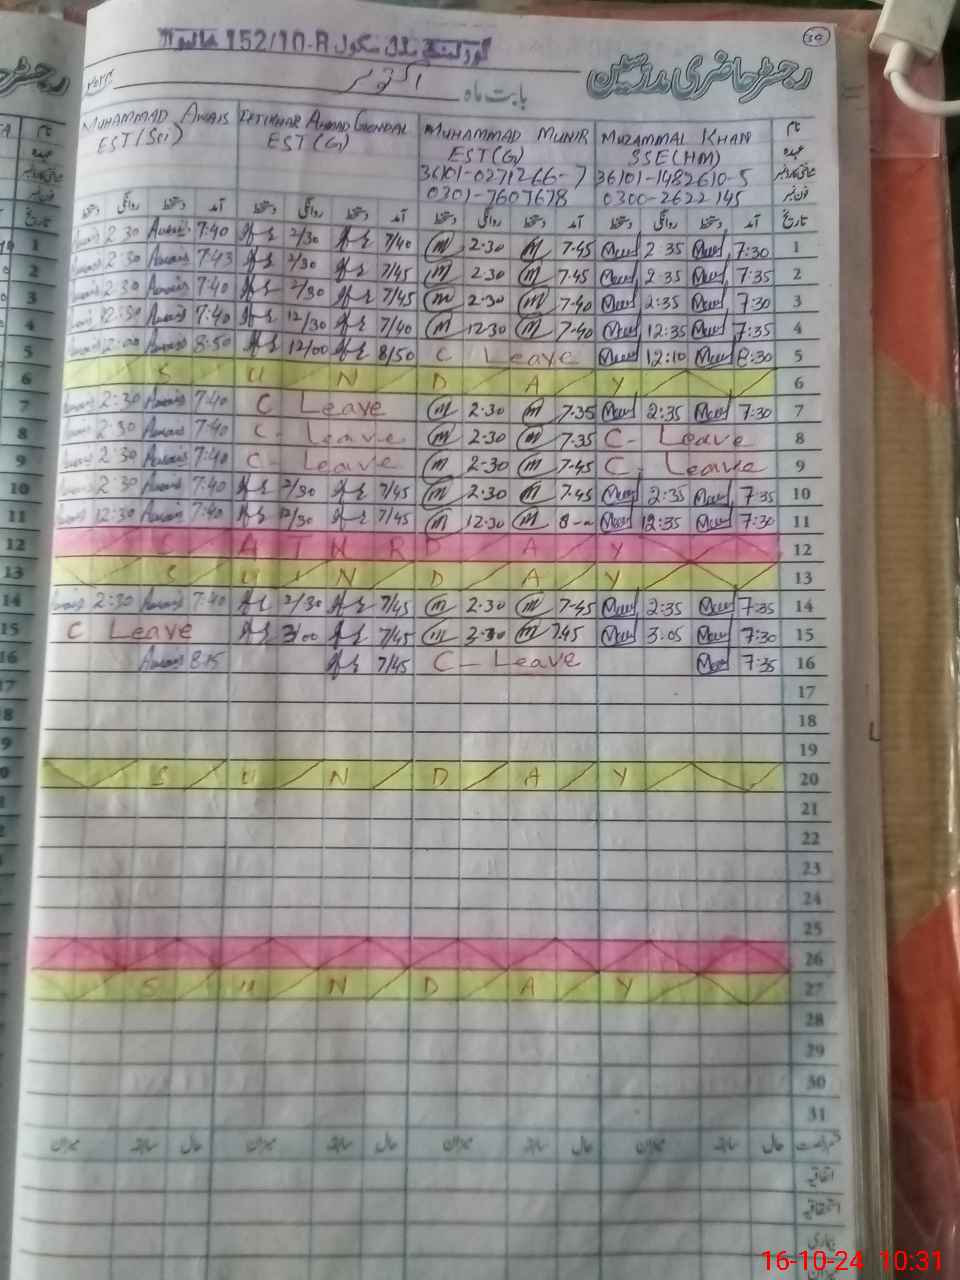 رجسٹر حاضری مدرسین
30
گورنمنٹ مڈل سکول 152/10-R خانیوال
بابت ماہ اکتوبر ۲۰۲۴
نام MUZAMMAL KHAN MUHAMMAD MUNIR IFTIKHAR AHMAD GONDAL MUHAMMAD AWAIS
عہدہ SSE(HM) EST(G) EST(G) EST(Sci)
36101-1482610-5 36101-0271266-7
فون نمبر 0300-2622145 0301-7607678
تاریخ آمد دستخط روانگی دستخط آمد دستخط روانگی دستخط آمد دستخط روانگی دستخط آمد دستخط روانگی دستخط
Awais 2:30 Awais 7:40 2/30 7/40 m 2.30 m 7.45 2:35 7:30 1
Awais 2:30 Awais 7:43 2/30 7/45 m 2.30 m 7.45 2:35 7:35 2
Awais 2:30 Awais 7:40 2/30 7/45 m 2.30 m 7.40 2:35 7:30 3
Awais 12:30 Awais 7:40 12/30 7/40 m 12.30 m 7.40 12:35 7:35 4
Awais 12:00 Awais 8:50 12/00 8/50 C Leave 12:10 8:30 5
S U N D A Y 6
Awais 2:30 Awais 7:40 C Leave m 2.30 m 7.35 2:35 7:30 7
Awais 2:30 Awais 7:40 C- Leave m 2.30 m 7.35 C- Leave 8
Awais 2:30 Awais 7:40 C- Leave m 2.30 m 7.45 C- Leave 9
Awais 2:30 Awais 7:40 2/30 7/45 m 2.30 m 7.45 2:35 7:35 10
Awais 12:30 Awais 7:40 12/30 7/45 m 12.30 m 12:35 7:30 11
S A T U R D A Y 12
S U N D A Y 13
Awais 2:30 Awais 7:40 2/30 7/45 m 2.30 m 7.45 2:35 7:35 14
C Leave 3/00 7/45 m 3.30 m 7.45 3.05 7:30 15
Awais 8:15 7/45 C- Leave 7:35 16
17
18
19
S U N D A Y 20
21
22
23
24
25
26
S U N D A Y 27
28
29
30
31
حال سابقہ میزان حال سابقہ میزان حال سابقہ میزان حال سابقہ میزان
اتفاقیہ
استحقاقیہ
بیماری
16-10-24 10:31